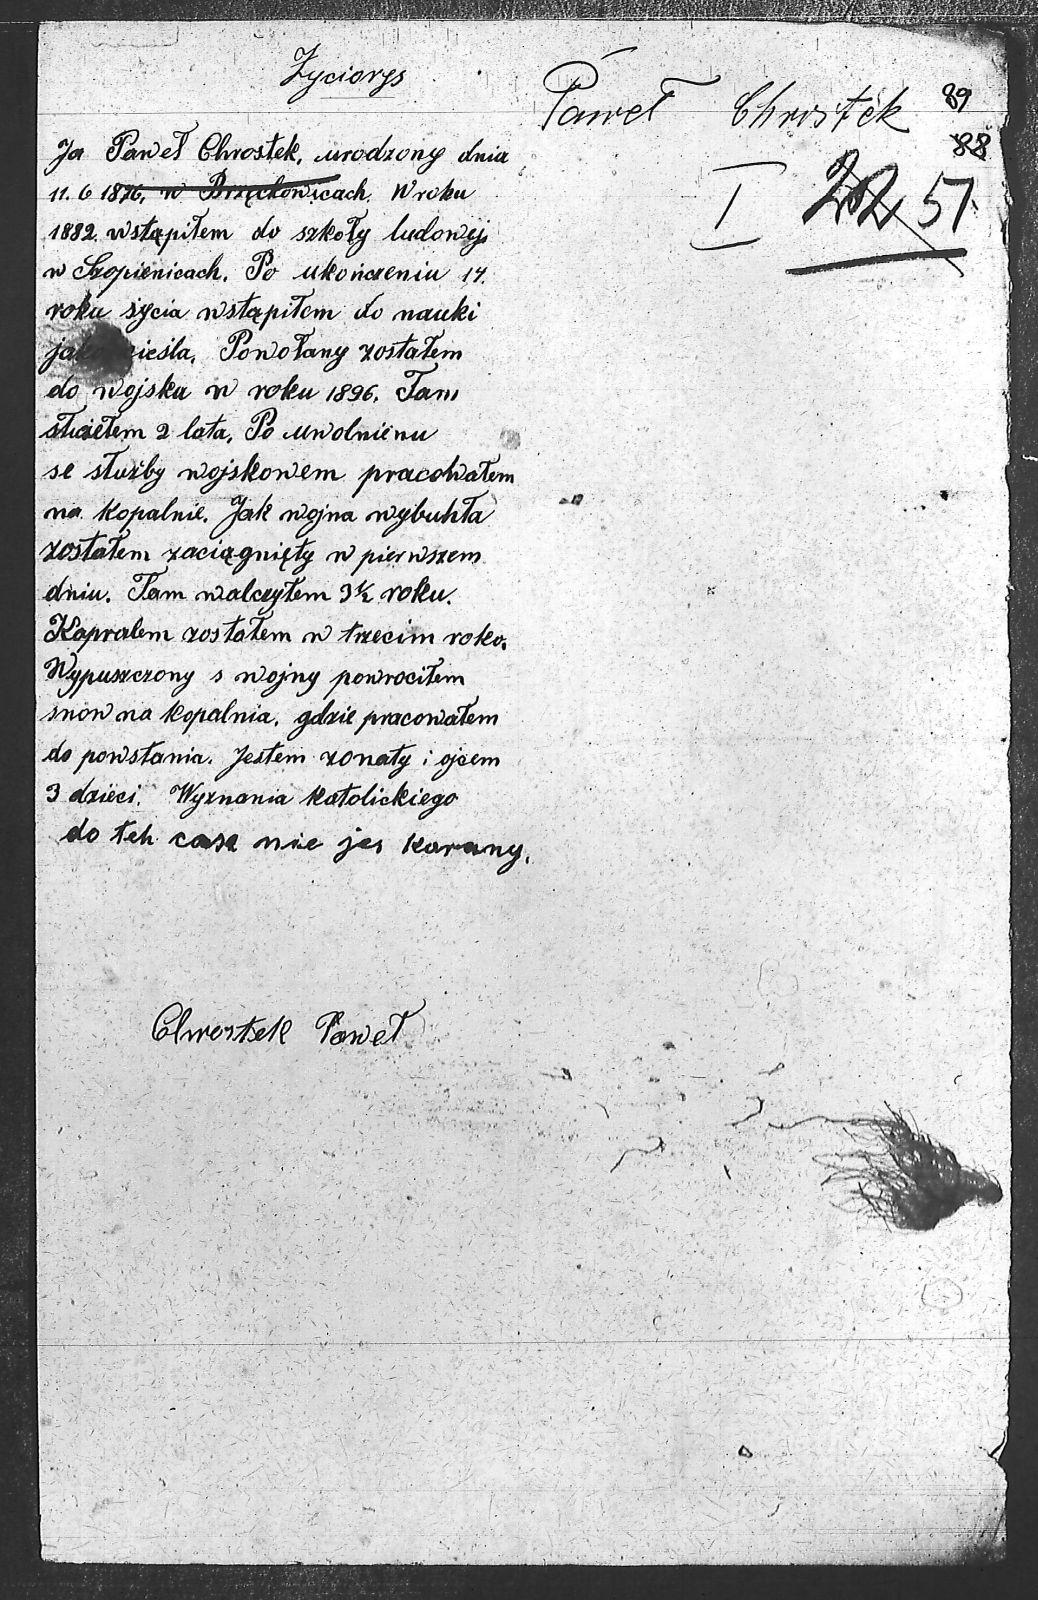 Życiorys
Paweł Chrostek
89
88
I 22 51
Ja Paweł Chrostek, urodzony dnia
11. 6 1876, w Brzęckowicach. W roku
1882 wstąpiłem do szkoły ludowej
w Szopienicach. Po ukończeniu 14.
roku życia wstąpiłem do nauki
Powołany zostałem
do wojska w roku 1896. Tam
2 lata. Po uwolnienu
se służby wojskowem pracowałem
na kopalnie. Jak wojna wybuhła
zostałem zaciągnięty w pierwszem
dniu. Tam walczyłem 3½ roku.
Kapralem zostałem w trzecim roko.
Wypuszczony s wojny powrociłem
snow na kopalnia, gdzie pracowałem
do powstania. Jestem zonaty i ojcem
3 dzieci. Wyznania katolickiego
do teh casa nie jes karany.
Chrostek Paweł